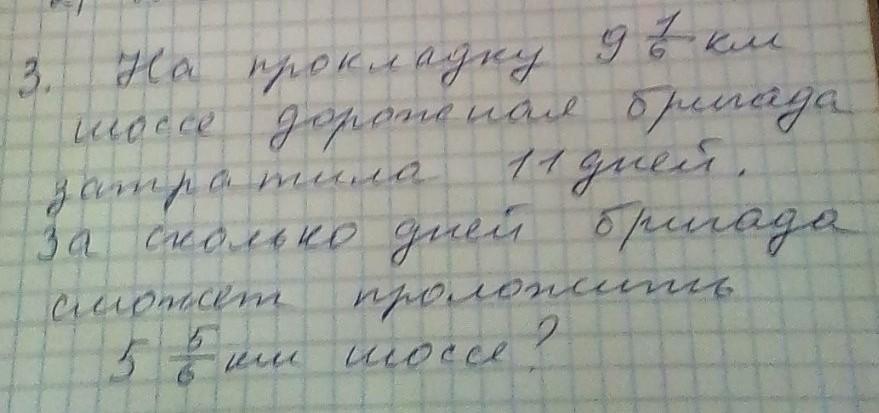 3. На прокладку 9 1/6 км
шоссе дорожная бригада
затратила 11 дней.
За сколько дней бригада
сможет проложить
5 5/6 км шоссе?